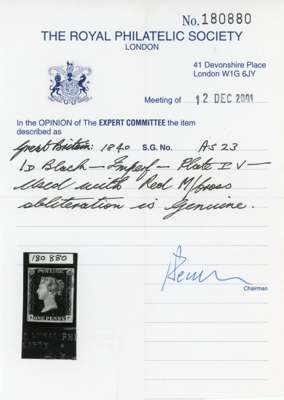 No. 180880
THE ROYAL PHILATELIC SOCIETY
LONDON
41 Devonshire Place
London W1G 6JY
Meeting of 12 DEC 2001
In the OPINION of The EXPERT COMMITTEE the item
described as
Great Britain: 1840 S.G. No. AS 23
1D Black – Imperf – Plate IV –
used with Red M/cross
obliteration is Genuine.
180 880
ONE PENNY
Chairman